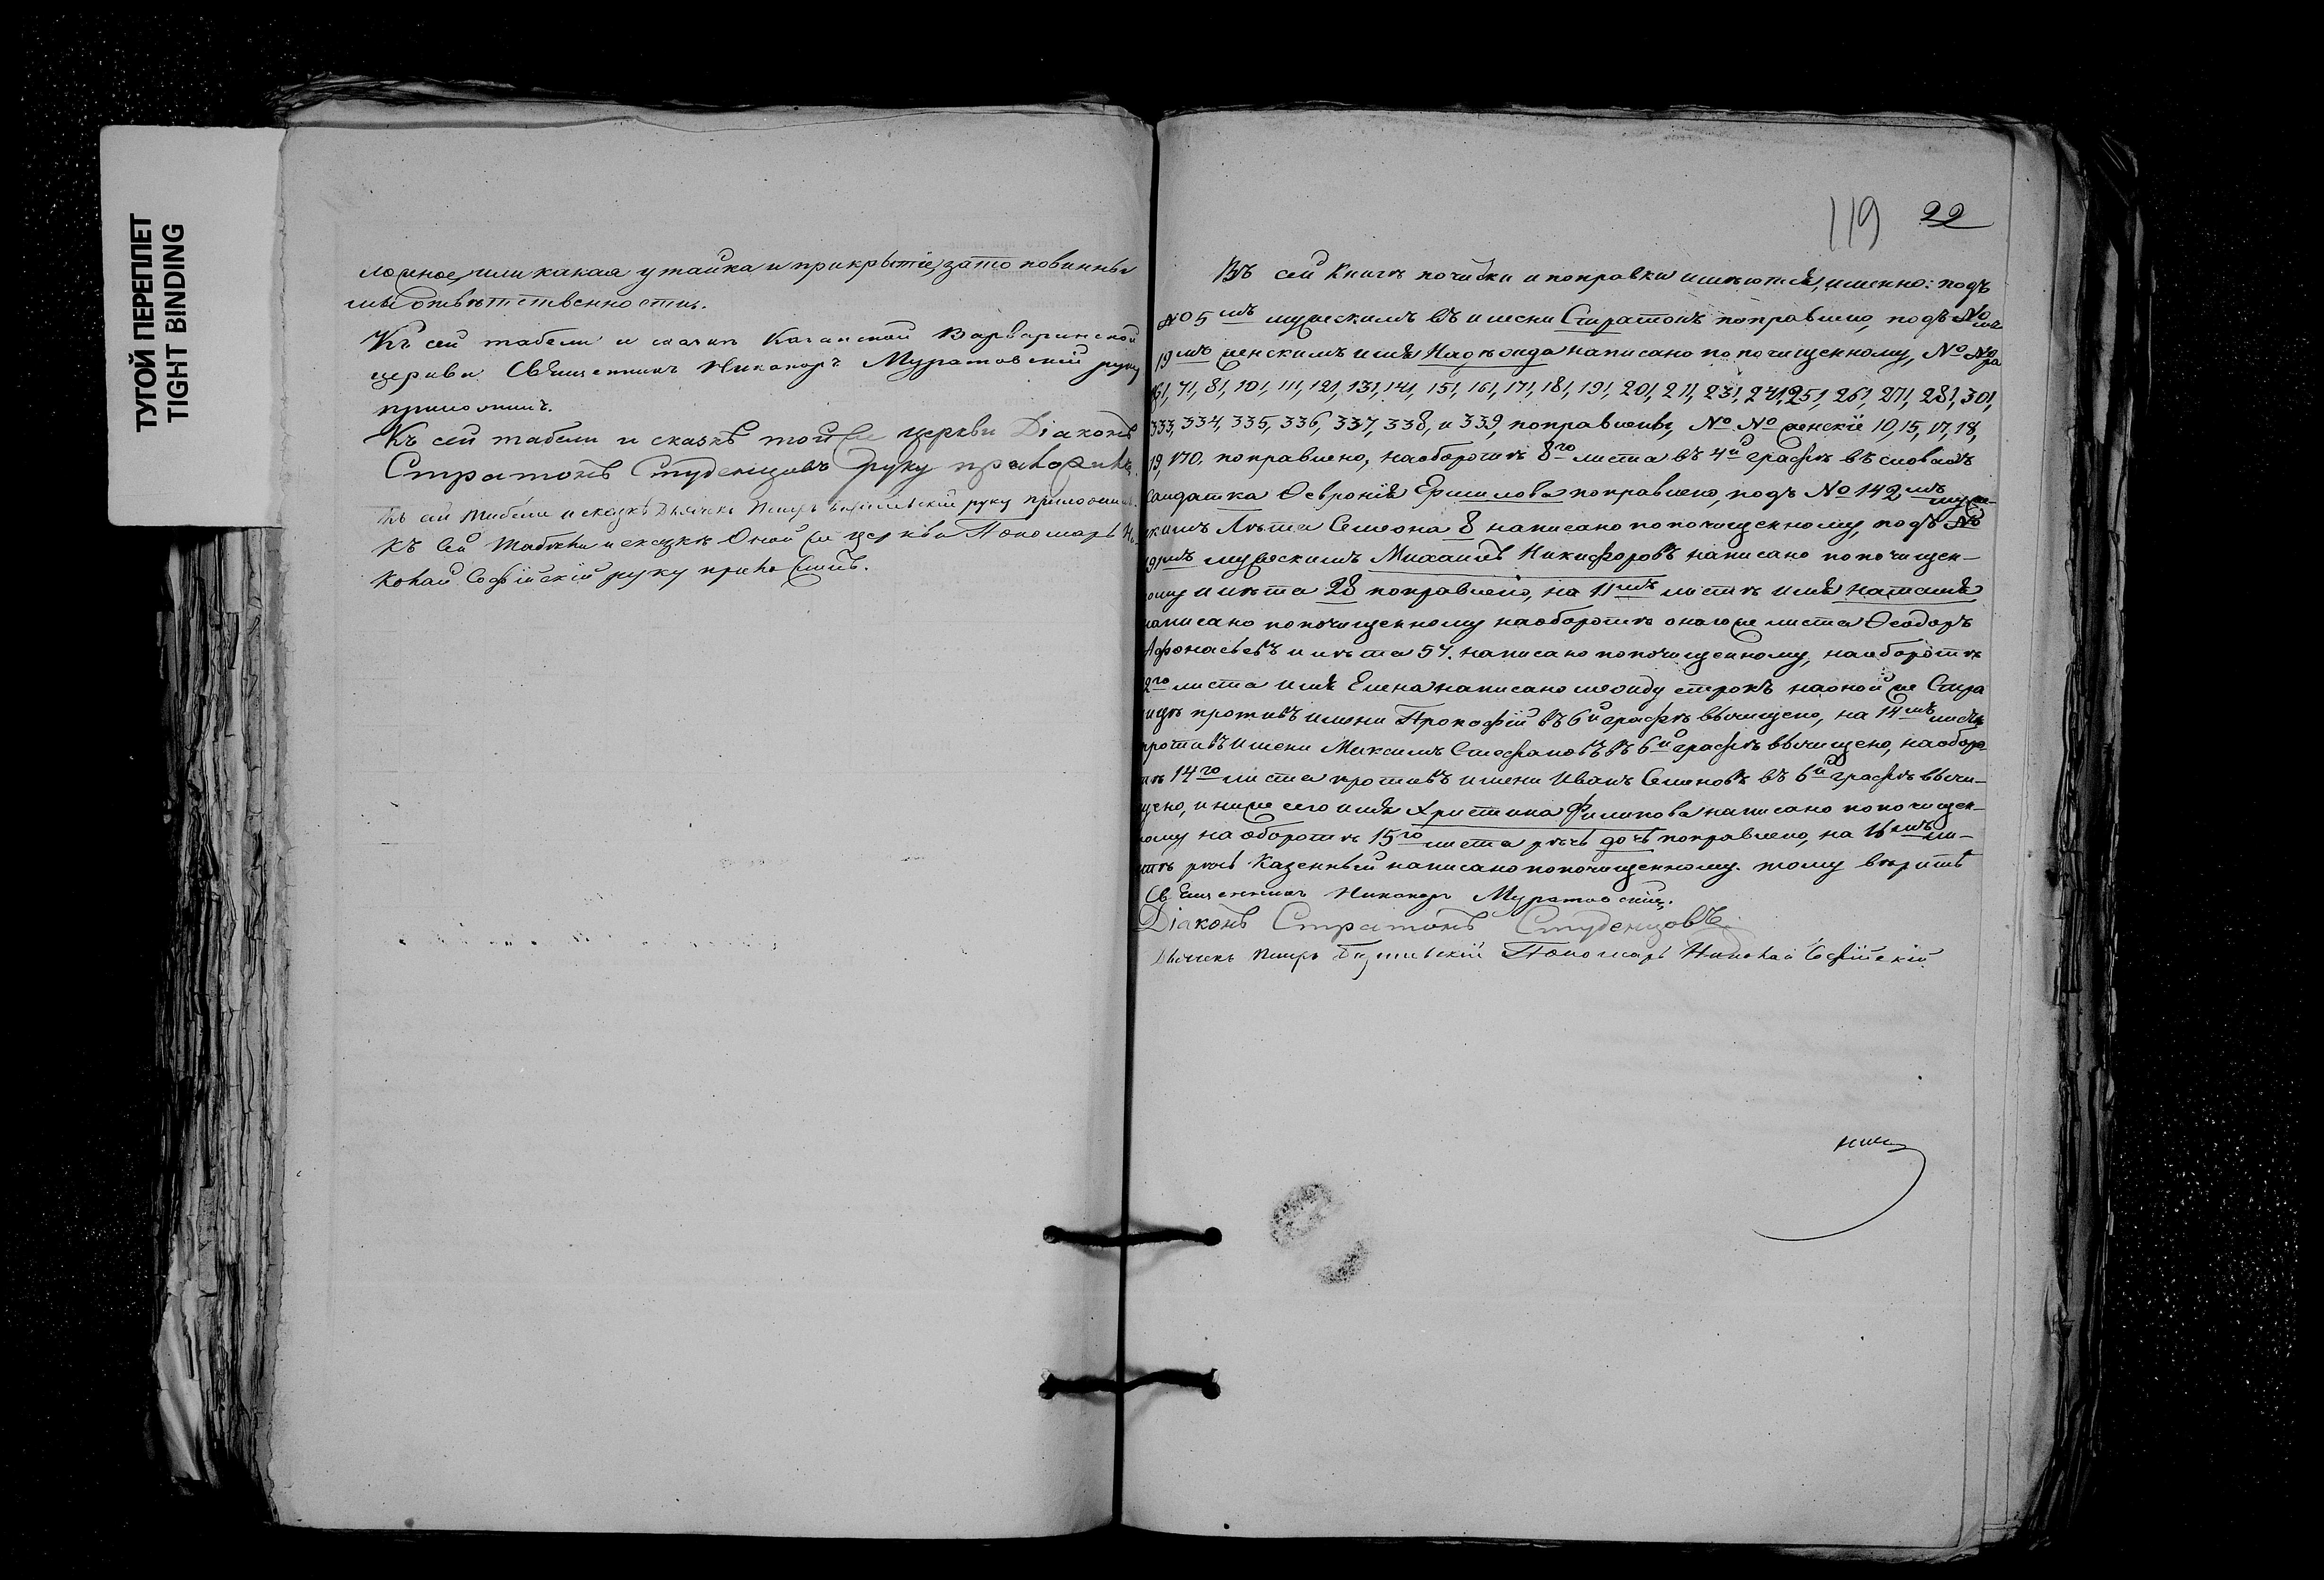 ТУГОЙ ПЕРЕПЛЕТ
TIGHT BINDING
ложное, или какая утайка и прикрытіе, зато повинны
мы ответственности.
Къ сей табели и сказке Казанской Варваринской
церкви Священникъ Никаноръ Муратовскій руку
приложилъ.
Къ сей табели и сказкѣ той же церкви Діаконъ
Стратонъ Студенцовъ руку приложилъ.
Къ сей табели и сказкѣ Дьячекъ Петръ руку приложилъ.
Къ сей табели и сказкѣ Оной же церкви Пономарь Ни-
колай Софійскій руку приложилъ.
119 22
Въ сей Книгѣ почистки и поправки имѣются, именно: подъ
№ 5мъ мужескимъ въ имени Стратонъ поправлено, подъ №мъ
19мъ женскимъ имя Надѣжда написано по почищенному, № №
61, 71, 81, 101, 111, 121, 131, 141, 151, 161, 171, 181, 191, 201, 211, 231, 241, 251, 261, 271, 281, 301,
333, 334, 335, 336, 337, 338, и 339, поправлены, № № женскіе 10, 15, 17, 18,
19, 170. поправлено, на оборотѣ 8го листа въ 4й графѣ въ словахъ
Солдатка Ѳевронія Ермилова поправлено, подъ № 142мъ муже-
скимъ Лѣта Семена 8 написано по почищенному, подъ №
191мъ мужескимъ Михаилъ Никифоровъ написано по почищен-
ному и лѣта 28 поправлено, на 11мъ листѣ имя Наталія
написано по почищенному на оборотѣ онаго же листа Ѳеодоръ
Афонасьевъ и лѣта 54. написано по почищенному, на оборотѣ
2го листа имя Елена написано между строкъ на оной же Стра
ницѣ противъ имени Прокофій въ 6й графѣ вычищено, на 14мъ листѣ
противъ имени Максимъ Стефановъ въ 6й графѣ вычищено, на оборо
тѣ 14го листа противъ имени Иванъ Семеновъ въ 6й графѣ вычи-
щено, и ниже сего имя Христина Филипова написано по почищен-
ному на оборотѣ 15го листа рѣчь дочь поправлено, на 16мъ ли-
стѣ рѣчь Казенный написано по почищенному. тому вѣрить
Священникъ Никаноръ Муратовскій.
Діаконъ Стратонъ Студенцовъ
Дьячекъ Петръ Пономарь Николай Софійскій